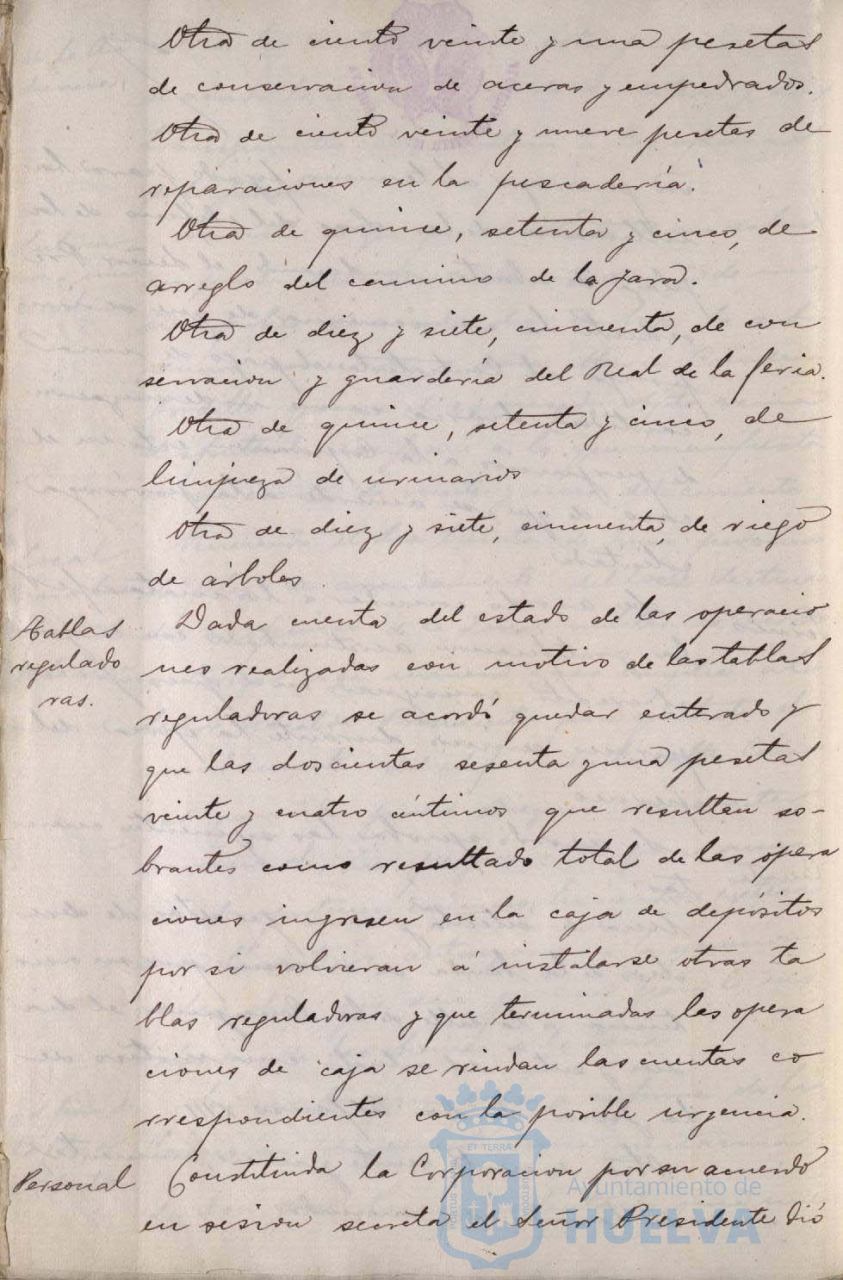 Otra de ciento veinte y una pesetas
de conservacion de aceras y empedrados.
Otra de ciento veinte y nueve pesetas de
reparaciones en la pescadería.
Otra de quince, setenta y cinco, de
arreglo del camino de la Jara.
Otra de diez y siete, cincuenta, de con
servacion y guardería del Real de la feria.
Otra de quince, setenta y cinco, de
limpieza de urinarios
Otra de diez y siete, cincuenta, de riego
de árboles.
Tablas
regulado
ras.
Dada cuenta del estado de las operacio
nes realizadas con motivo de las tablas
reguladoras se acordó quedar enterado y
que las doscientas sesenta y una pesetas
veinte y cuatro céntimos que resultan so-
brantes como resultado total de las opera
ciones ingresen en la caja de depósitos
por si volvieran á instalarse otras ta
blas reguladoras y que terminadas las opera
ciones de caja se rindan las cuentas co
rrespondientes con la posible urgencia.
Personal
Constituida la Corporacion por su acuerdo
en sesion secreta el Señor Presidente dió
ET TERRA
Ayuntamiento de
HUELVA